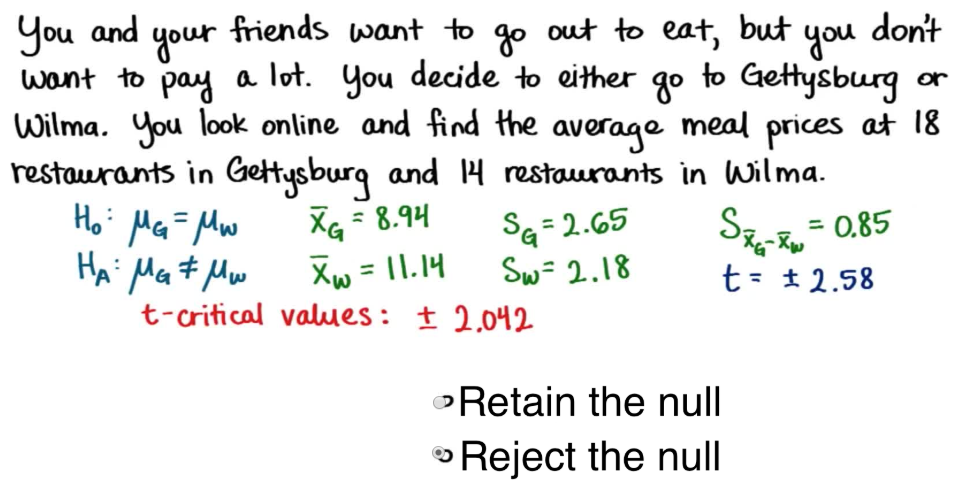 You and your friends want to go out to eat, but you don't
want to pay a lot. You decide to either go to Gettysburg or
Wilma. You look online and find the average meal prices at 18
restaurants in Gettysburg and 14 restaurants in Wilma.
H₀: μG = μW x̄G = 8.94 SG = 2.65 Sx̄G-x̄W = 0.85
HA: μG ≠ μW x̄W = 11.14 SW = 2.18 t = ± 2.58
t-critical values: ± 2.042
Retain the null
Reject the null